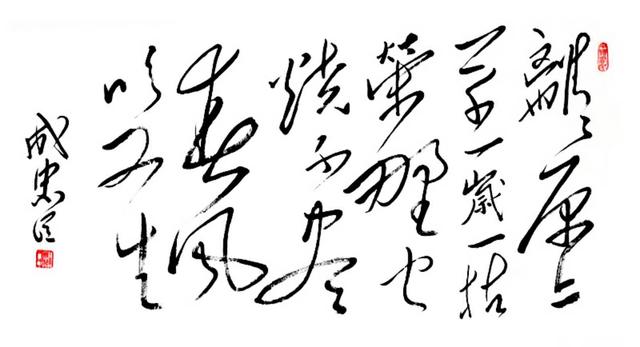 離々原上
草一歲一枯
榮野火
燒不盡
春風
吹又生